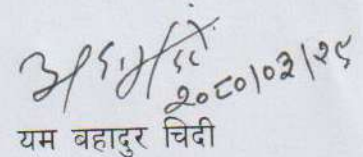 २०८०।०३।२९
यम बहादुर चिदी